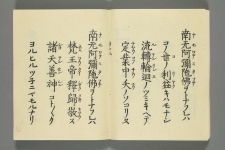 南无阿彌陀佛ヲトナフレハ
コノ世ノ利益キハモナシ
流轉輪廻ノツミキヘテ
定業中夭ノソコリヌ
南无阿彌陀佛ヲトナフレハ
梵王帝釋歸敬ス
諸天善神コトコトク
ヨルヒルツネニマモルナリ